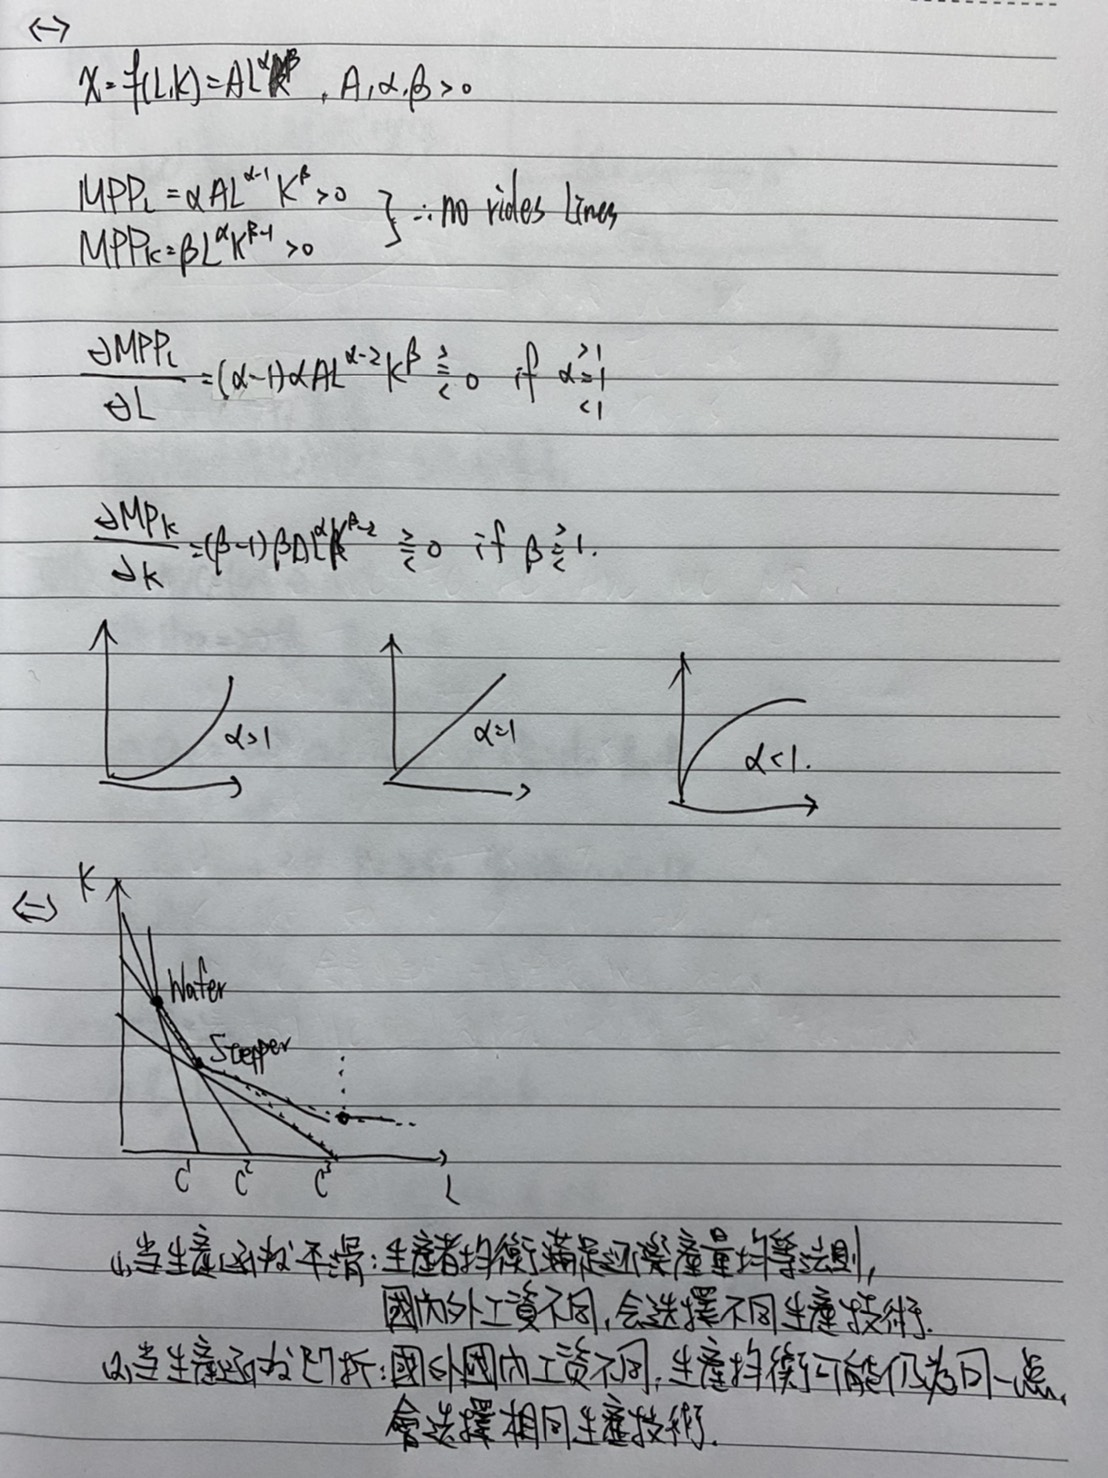 (一)
X = f(L,K) = AL^α K^β , A,α,β > 0
MPP_L = αAL^(α-1) K^β > 0
MPP_K = βL^α K^(β-1) > 0
} ∴ no rides lines
∂MPP_L/∂L = (α-1)αAL^(α-2) K^β ⋛ 0 if α >1 =1 <1
∂MPP_K/∂K = (β-1)βAL^α K^(β-2) ⋛ 0 if β ⋛ 1.
α>1
α=1
α<1.
(二)
K
Wafer
Stepper
C^1 C^2 C^3 L
(1)當生產函數平滑:生產者均衡滿足邊際產量均等法則,
國內外工資不同,会选擇不同生產技術.
(2)當生產函數凹折:國外國內工資不同,生產均衡可能仍為同一點,
會选擇相同生產技術.